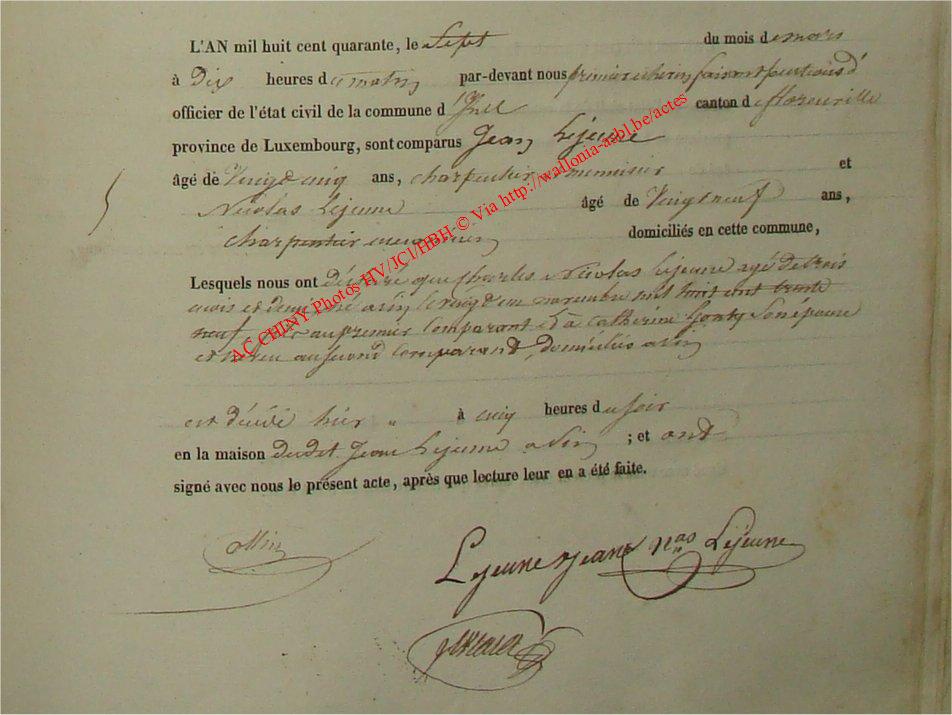 L'AN mil huit cent quarante, le Sept du mois de mars
à Dix heures du matin par-devant nous premier echevin faisant fonctions d'
officier de l'état civil de la commune d' canton de florenville
province de Luxembourg, sont comparus Jean Lejeune
âgé de Vingt cinq ans, charpentier menuisier et
Nicolas Lejeune âgé de Vingt neuf ans,
charpentier menuisier domiciliés en cette commune,
Lesquels nous ont déclaré que Charles Nicolas Lejeune agé de trois
mois et demi né a le vingt un novembre mil huit cent trente
neuf, au premier Comparant et à Catherine Son épouse
et neveu au second Comparant, domiciliés a
est décédé hier " à cinq heures du soir
en la maison dudit Jean Lejeune a ; et ont
signé avec nous le présent acte, après que lecture leur en a été faite.
Lejeune Jean Nas Lejeune
AC CHINY Photos HV/JCI/HBH © Via http://wallonia-asbl.be/actes